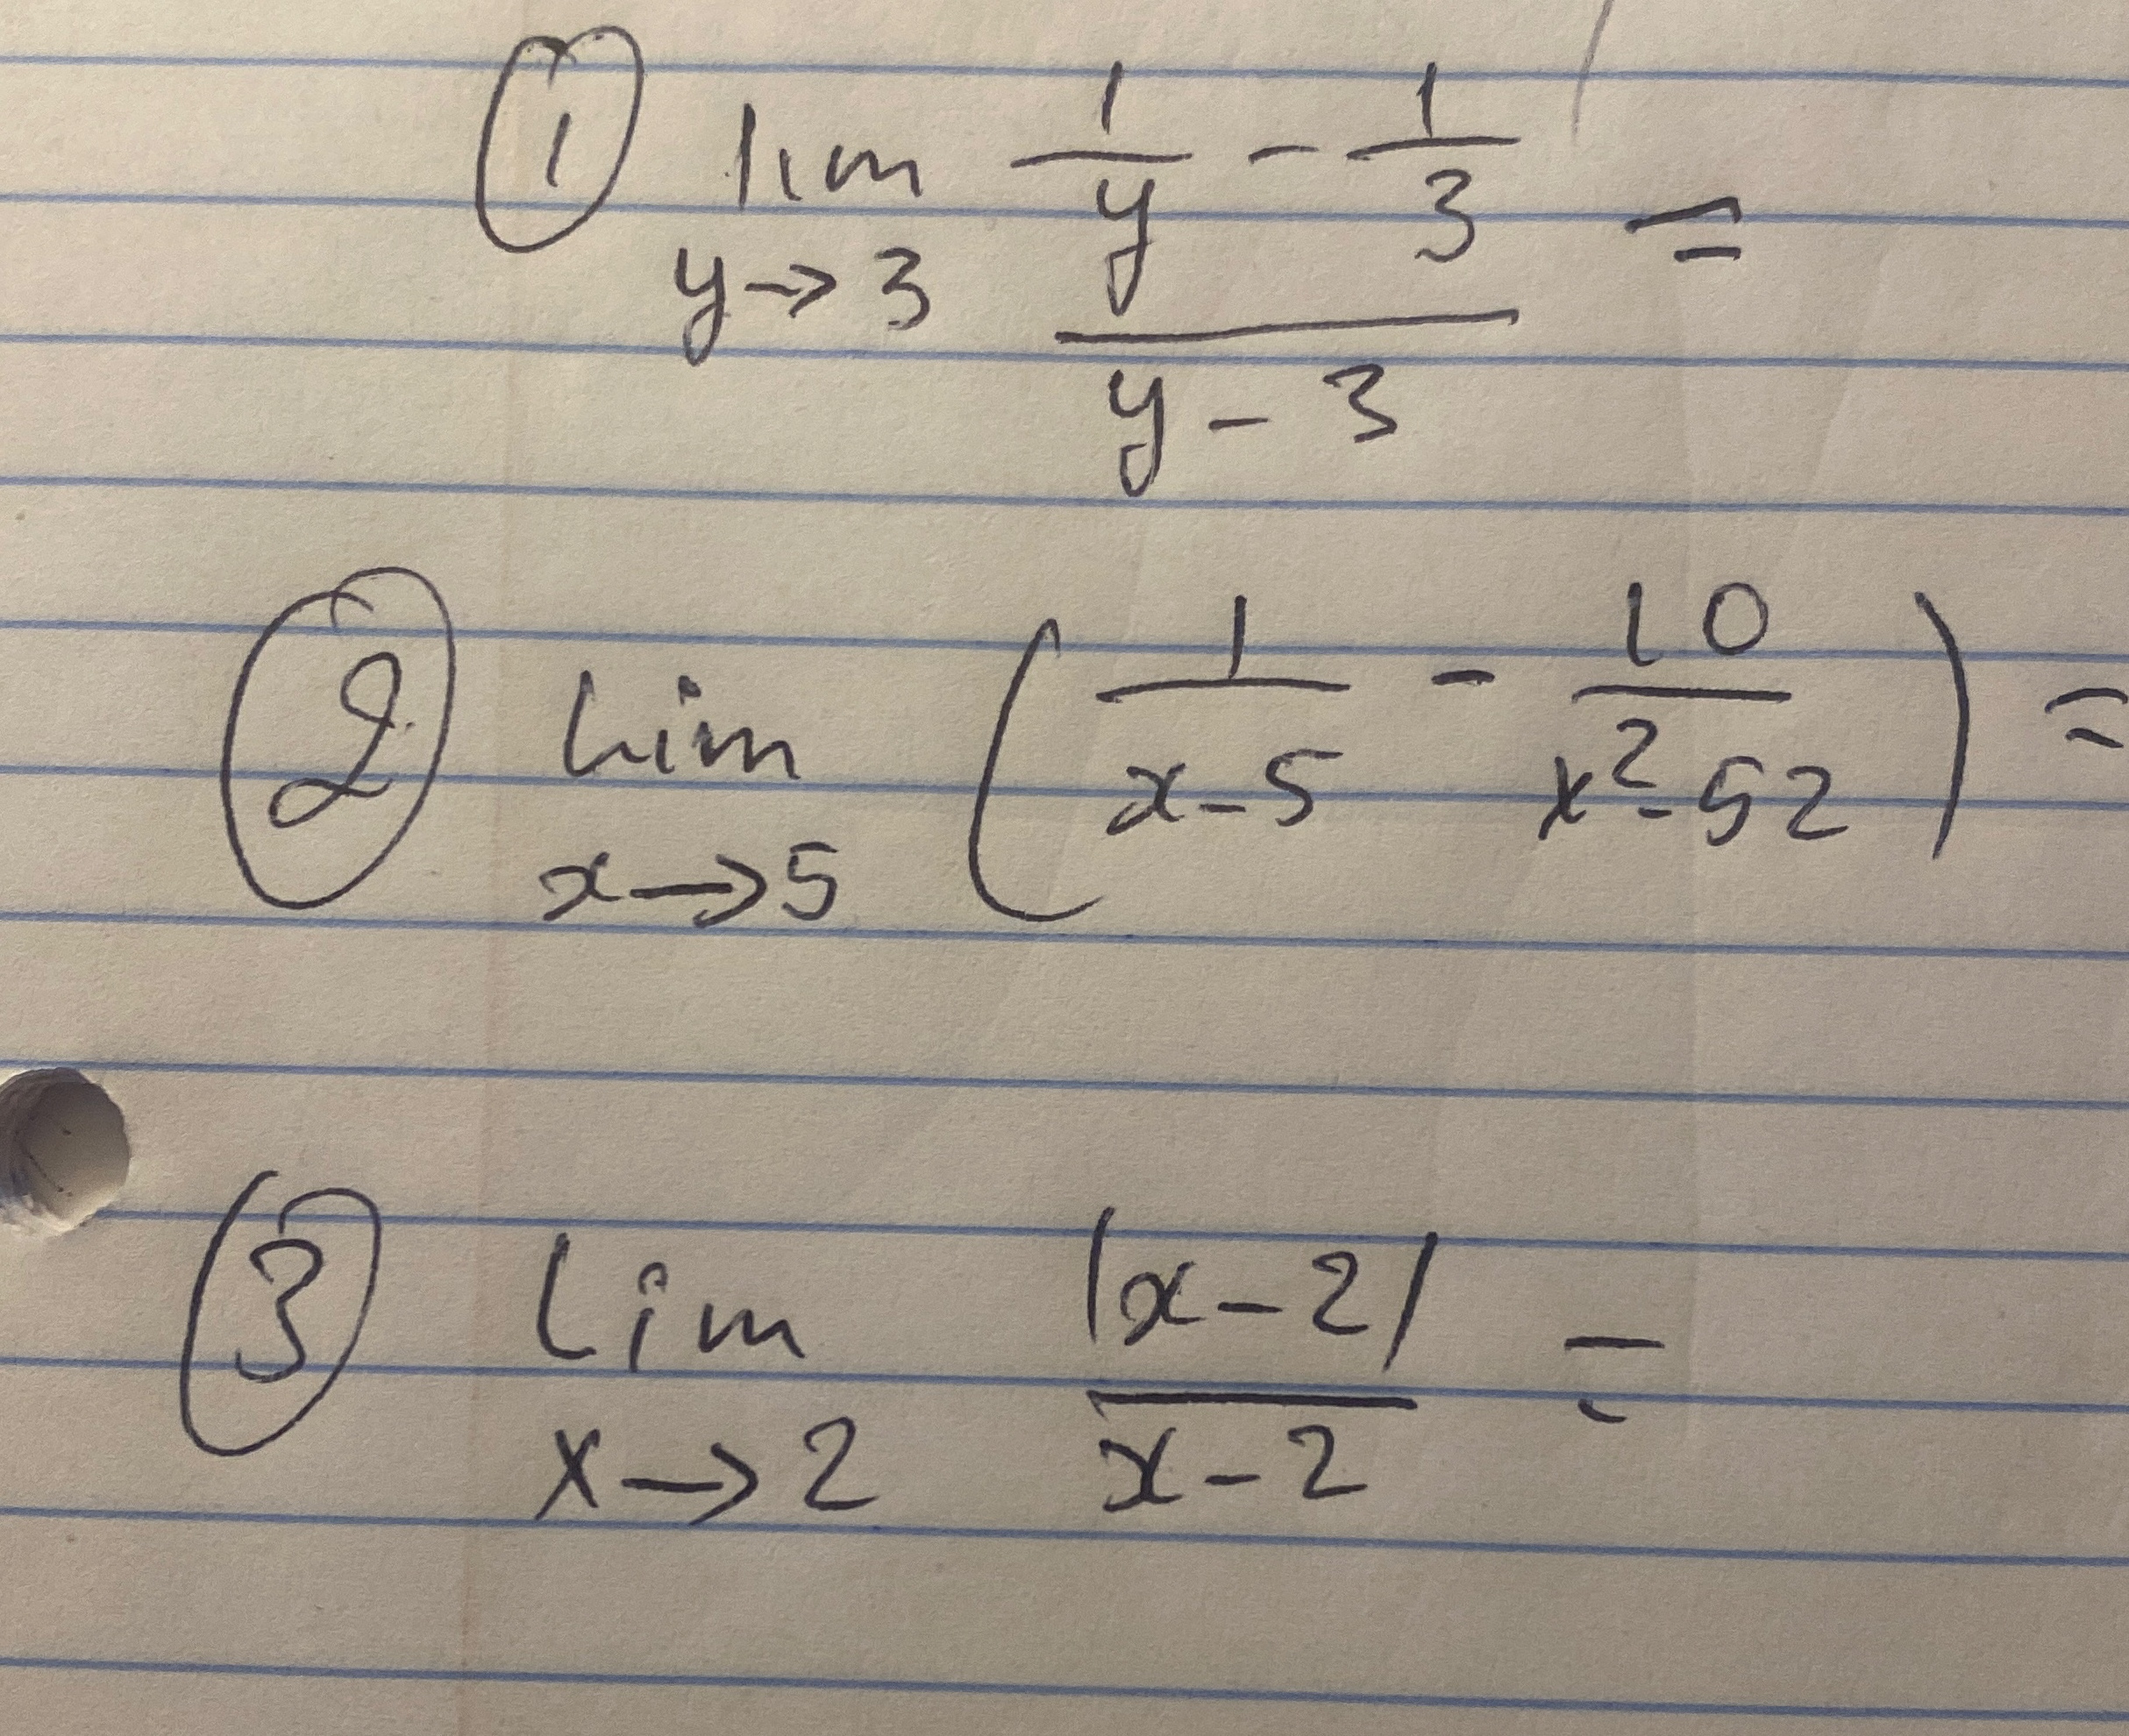 ① lim y→3 (1/y - 1/3)/(y - 3) =
② lim x→5 (1/(x-5) - 10/(x²-52)) =
③ lim x→2 |x-2|/(x-2) =